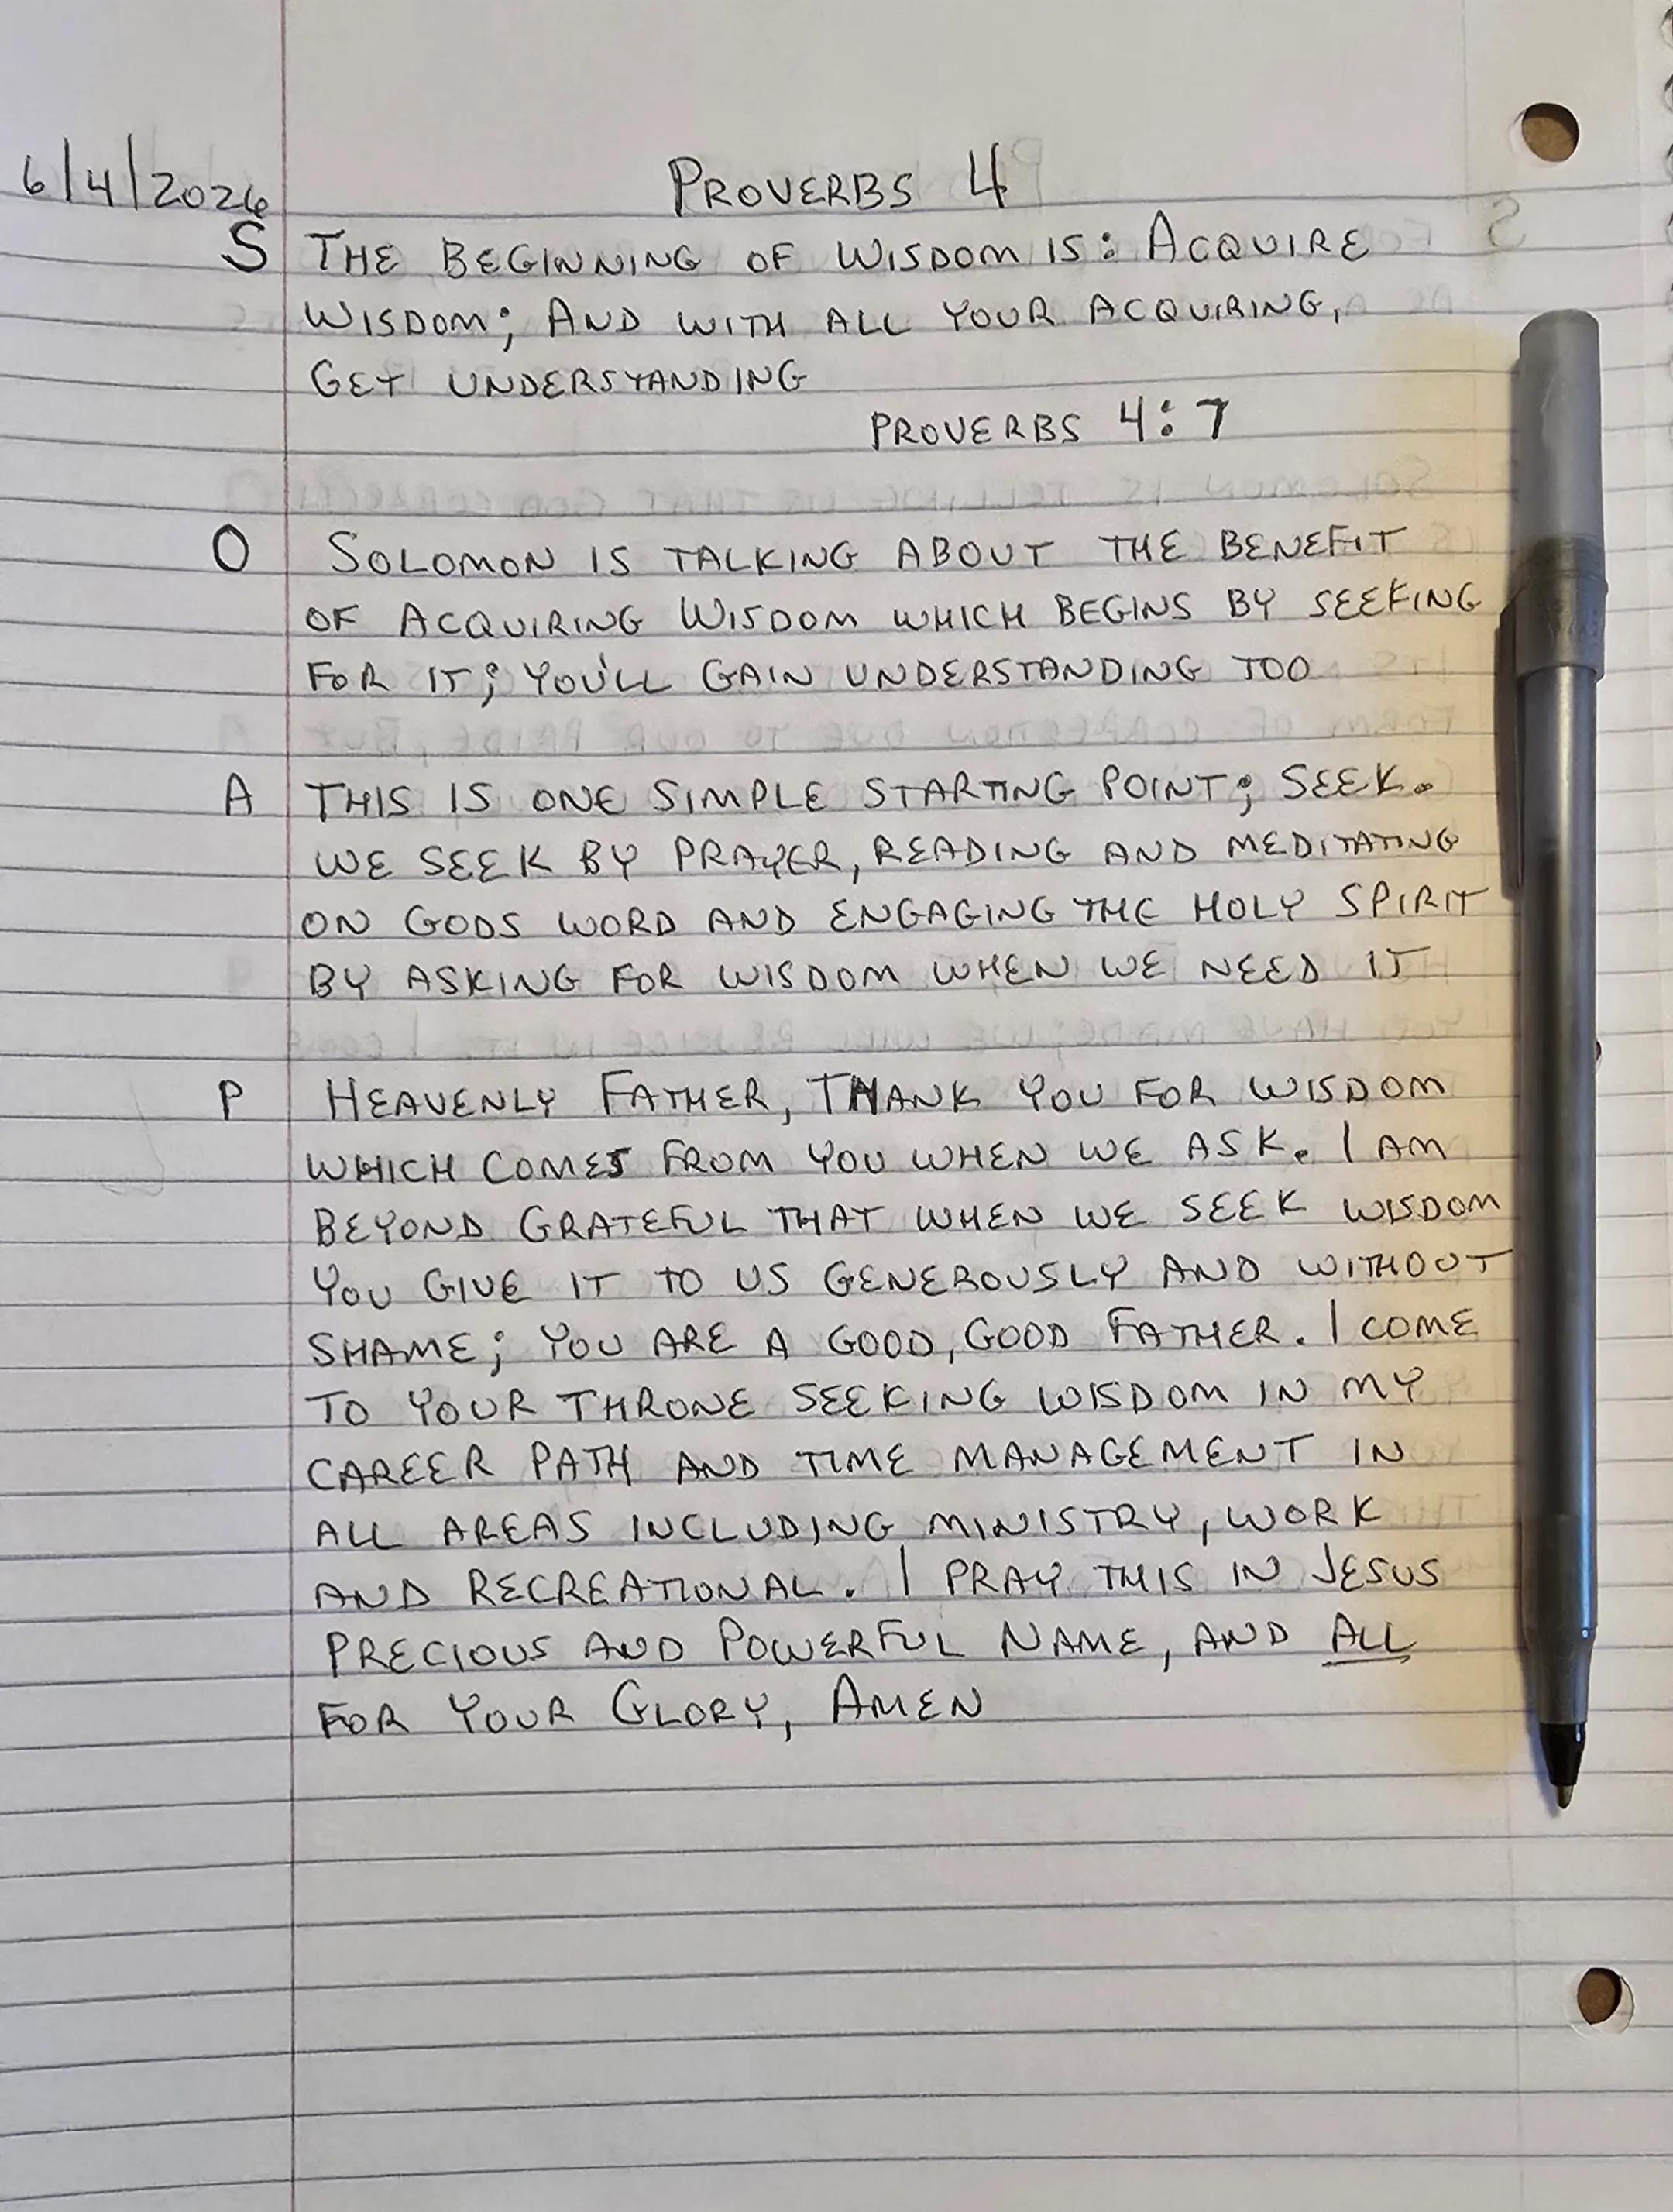 6/4/2026 PROVERBS 4
S THE BEGINNING OF WISDOM IS: ACQUIRE
WISDOM; AND WITH ALL YOUR ACQUIRING,
GET UNDERSTANDING
PROVERBS 4:7
O SOLOMON IS TALKING ABOUT THE BENEFIT
OF ACQUIRING WISDOM WHICH BEGINS BY SEEKING
FOR IT; YOU'LL GAIN UNDERSTANDING TOO
A THIS IS ONE SIMPLE STARTING POINT; SEEK.
WE SEEK BY PRAYER, READING AND MEDITATING
ON GODS WORD AND ENGAGING THE HOLY SPIRIT
BY ASKING FOR WISDOM WHEN WE NEED IT
P HEAVENLY FATHER, THANK YOU FOR WISDOM
WHICH COMES FROM YOU WHEN WE ASK. I AM
BEYOND GRATEFUL THAT WHEN WE SEEK WISDOM
YOU GIVE IT TO US GENEROUSLY AND WITHOUT
SHAME; YOU ARE A GOOD, GOOD FATHER. I COME
TO YOUR THRONE SEEKING WISDOM IN MY
CAREER PATH AND TIME MANAGEMENT IN
ALL AREAS INCLUDING MINISTRY, WORK
AND RECREATIONAL. I PRAY THIS IN JESUS
PRECIOUS AND POWERFUL NAME, AND ALL
FOR YOUR GLORY, AMEN